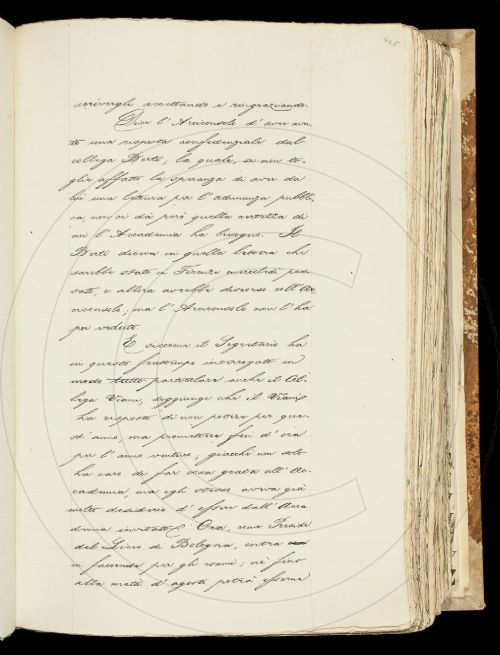 465
scrivergli accettando e ringraziando.
Dice l'Arciconsolo d'aver avu-
to una risposta confidenziale dal
collega Berti, la quale, se non to-
glie affatto la speranza di aver da
lui una lettura per l'adunanza pubbli-
ca non ci dà però quella certezza di
cui l'Accademia ha bisogno. Il
Berti diceva in quella lettera che
sarebbe stato in Firenze mercoledì pas-
sato, e allora avrebbe discorso coll'Ar-
ciconsolo; ma l'Arciconsolo non l'ha
poi veduto.
E siccome il Segretario ha
in questo frattempo interrogato in
modo tutto particolare anche il Col-
lega Viani, soggiunge che il Viani
ha risposto di non potere per que-
st'anno, ma promettere fin d'ora
per l'anno venturo; giacchè non solo
ha caro di far cosa grata all'Ac-
cademia ma egli stesso aveva già
molto desiderio d'esser dall'Acca-
demia invitato. Ora, come Preside
del Liceo di Bologna, entra
in faccende per gli esami; nè fino
alla metà d'agosto potrà esserne